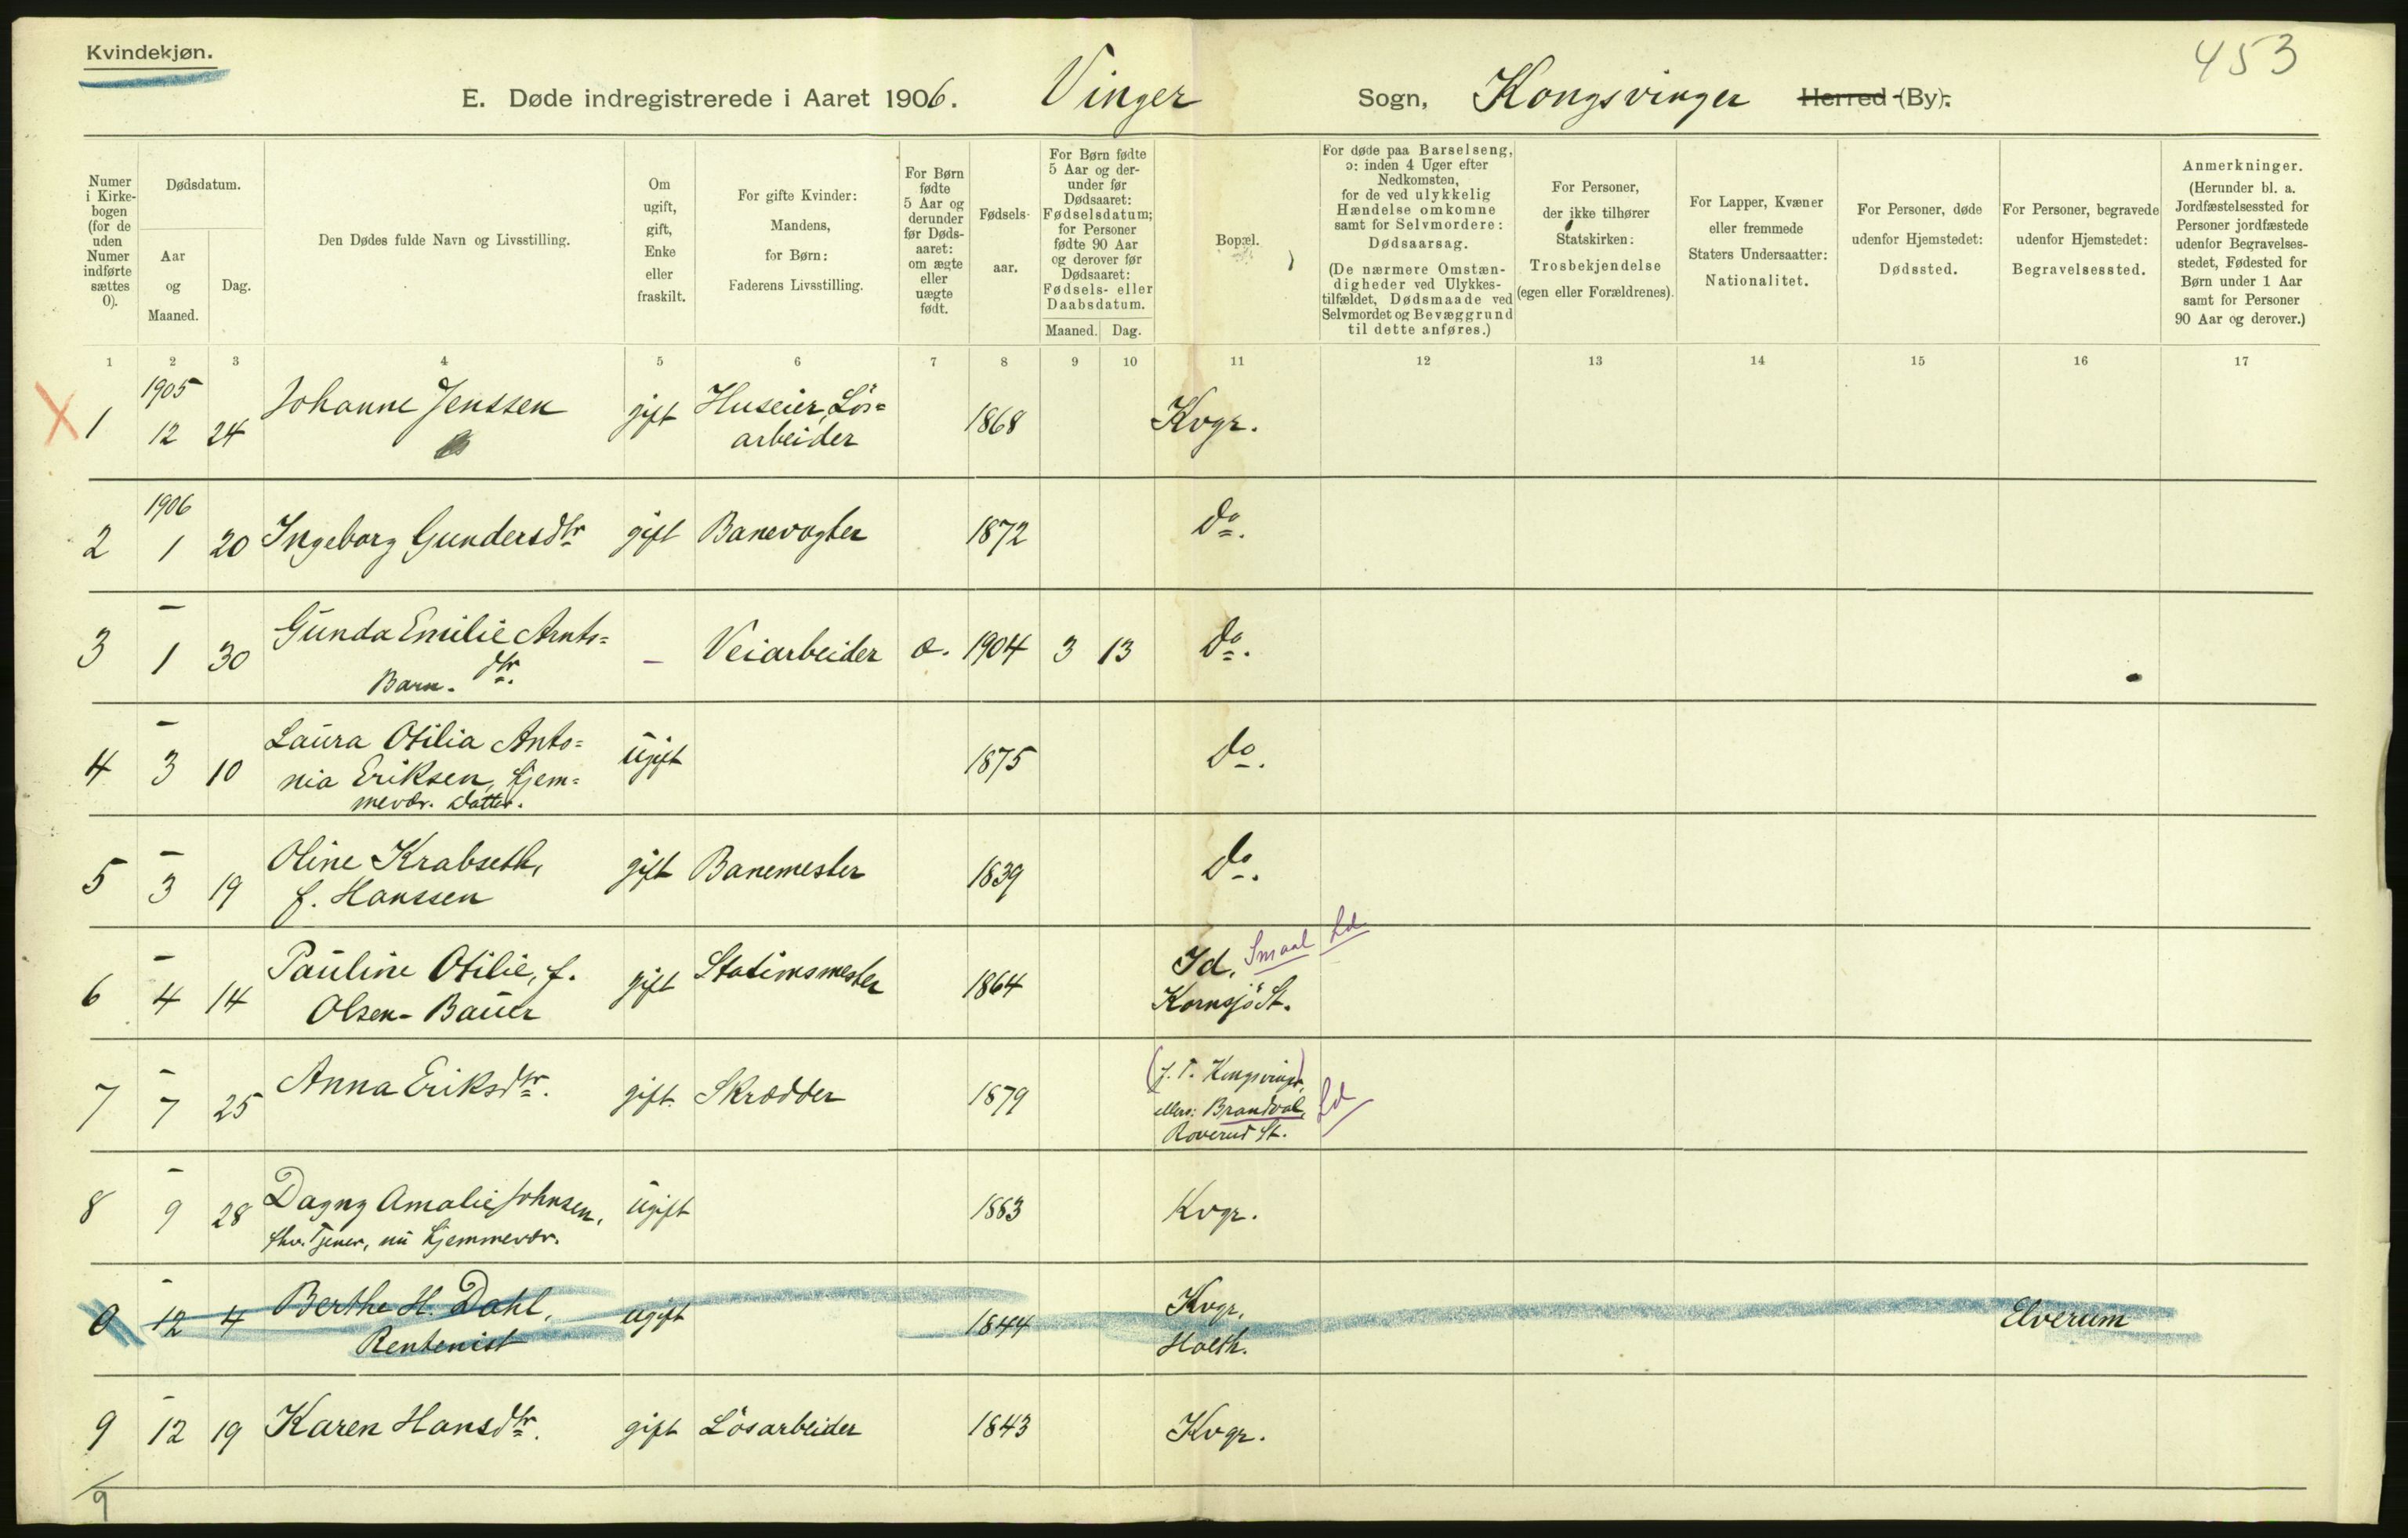 Kvindekjøn.
453
E. Døde indregistrerede i Aaret 1906. Vinger Sogn, Kongsvinger Herred (By).
Numer i Kirke-bogen (for de uden Numer indførte sættes 0).
Dødsdatum.
Aar og Maaned.
Dag.
Den Dødes fulde Navn og Livsstilling.
Om ugift, gift, Enke eller fraskilt.
For gifte Kvinder: Mandens, for Børn: Faderens Livsstilling.
For Børn fødte 5 Aar og derunder før Døds-aaret: om ægte eller uægte født.
Fødsels-aar.
For Børn fødte 5 Aar og der-under før Dødsaaret: Fødselsdatum; for Personer fødte 90 Aar og derover før Dødsaaret: Fødsels- eller Daabsdatum.
Maaned. Dag.
Bopæl.
For døde paa Barselseng, ɔ: inden 4 Uger efter Nedkomsten, for de ved ulykkelig Hændelse omkomne samt for Selvmordere: Dødsaarsag.
(De nærmere Omstæn-digheder ved Ulykkes-tilfældet, Dødsmaade ved Selvmordet og Bevæggrund til dette anføres.)
For Personer, der ikke tilhører Statskirken: Trosbekjendelse (egen eller Forældrenes).
For Lapper, Kvæner eller fremmede Staters Undersaatter: Nationalitet.
For Personer, døde udenfor Hjemstedet: Dødssted.
For Personer, begravede udenfor Hjemstedet: Begravelsessted.
Anmerkninger.
(Herunder bl. a. Jordfæstelsessted for Personer jordfæstede udenfor Begravelses-stedet, Fødested for Børn under 1 Aar samt for Personer 90 Aar og derover.)
1 2 3 4 5 6 7 8 9 10 11 12 13 14 15 16 17
X 1 1905 12 24 Johanne Jenssen gift Huseier, Lös=
arbeider 1868 Kvgr.
2 1906 1 20 Ingeborg Gundersdtr gift Banevogter 1872 Do.
3 – 1 30 Gunda Emilie Arnts=
dtr. Barn. – Veiarbeider æ. 1904 3 13 Do.
4 – 3 10 Laura Otilia Anto=
nia Eriksen, Hjem=
mevær. Datter. ugift 1875 Do.
5 – 3 19 Oline Krabseth,
f. Hanssen gift Banemester 1839 Do.
6 – 4 14 Pauline Otilie, f.
Olsen-Bauer gift Stationsmester 1864 Id, Smaal Ld
Kornsjö St.
7 – 7 25 Anna Eriksdtr. gift Skrædder 1879 (f. T. Kongsvinger)
ellers: Brandval, Ld
Roverud St.
8 – 9 28 Dagny Amalie Johnsen,
Tjener, nu hjemmevær. ugift 1883 Kvgr.
0 – 12 4 Berthe H. Dahl,
Rentenist ugift 1844 Kvgr.
Holth. Elverum
9 – 12 19 Karen Hansdtr. gift Lösarbeider 1843 Kvgr.
9